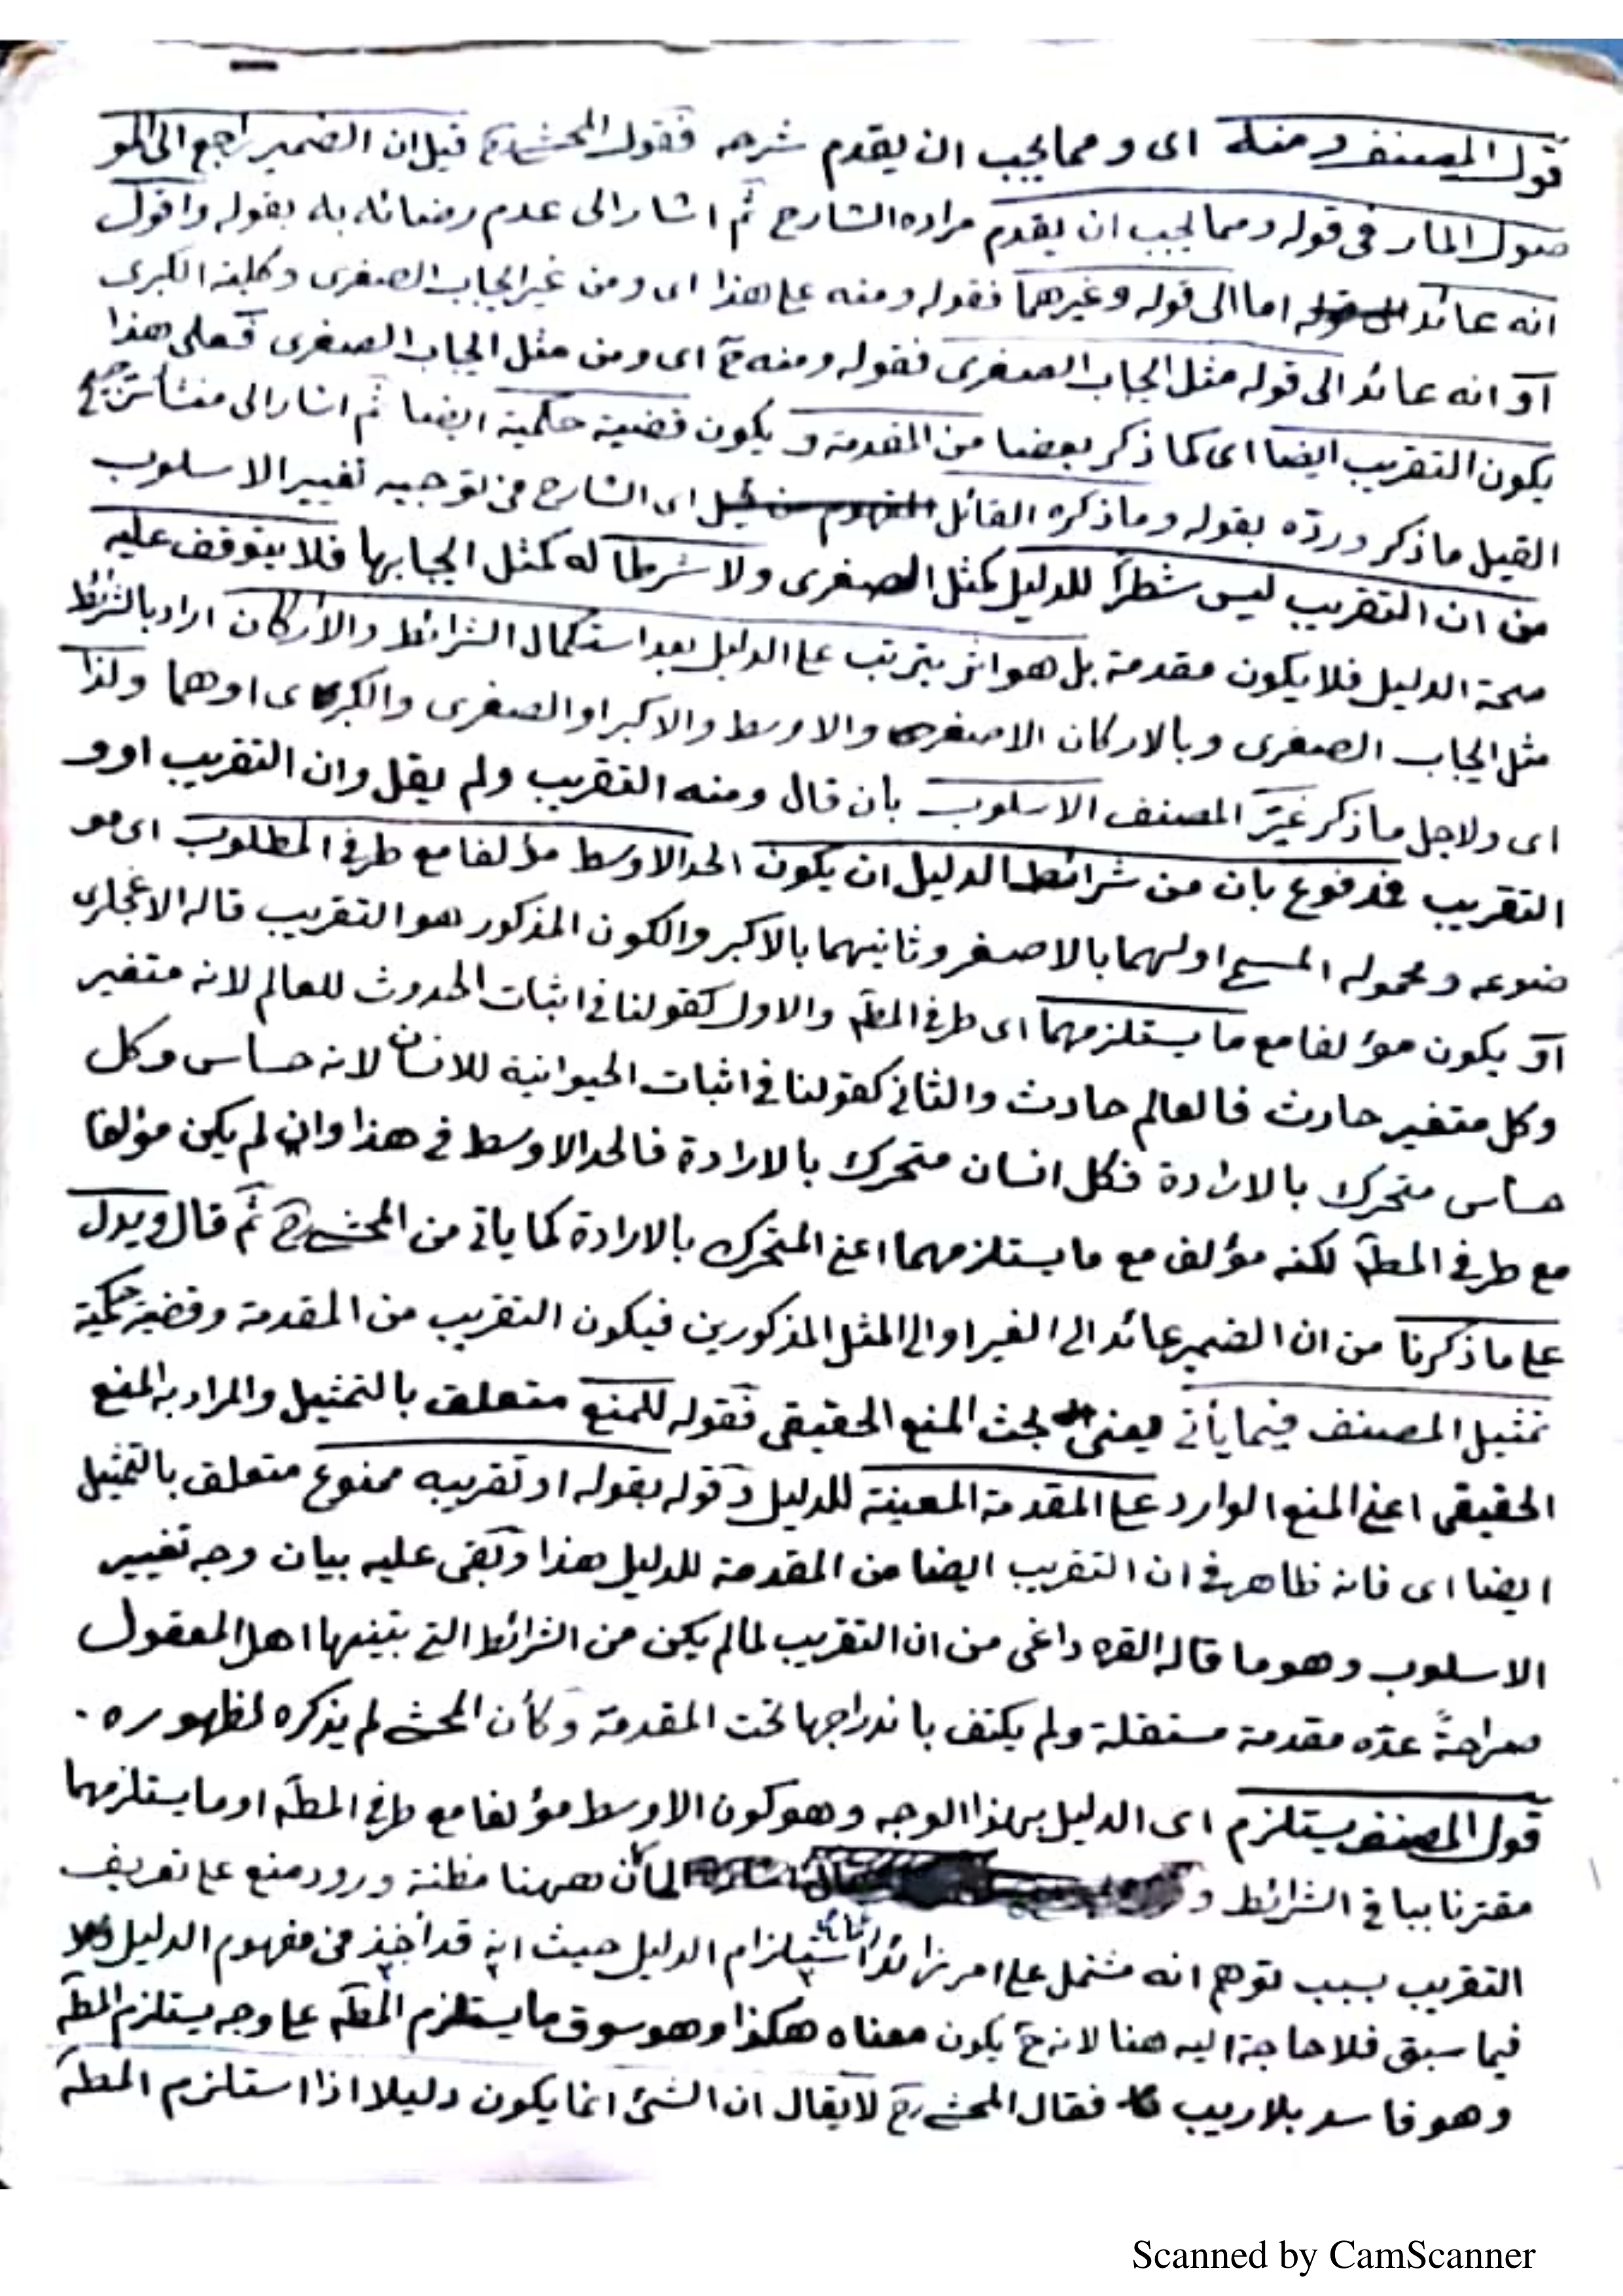 قول المصنف ومنه اى ومما يجب ان يقدم شرحه فقول المحشى قيل ان الضمير راجع الى المو
صول المار فى قوله ومما يجب ان يقدم مراده الشارح ثم اشار الى عدم رضائه به بقوله واقول
انه عائد اما الى قوله وغيرهما فقوله ومنه على هذا اى ومن غير ايجاب الصغرى وكلية الكبرى
او انه عائد الى قوله مثل ايجاب الصغرى فقوله ومنه ح اى ومن مثل ايجاب الصغرى فعلى هذا
يكون التقريب ايضا اى كما ذكر بعضا من المقدمة ويكون قضية حكمية ايضا ثم اشار الى منشأ
القيل ما ذكر ورده بقوله وما ذكره القائل اى الشارح من توجيه تغيير الاسلوب
من ان التقريب ليس شطرا للدليل كمثل الصغرى ولا شرطا له كمثل ايجابها فلا يتوقف عليه
صحة الدليل فلا يكون مقدمة بل هو اثر يترتب على الدليل بعد استكمال الشرائط والاركان اراد بالشرائط
مثل ايجاب الصغرى وبالاركان الاصغر والاوسط والاكبر او الصغرى والكبرى اوهما ولذا
اى ولاجل ما ذكر غيّر المصنف الاسلوب بان قال ومنه التقريب ولم يقل وان التقريب او و
التقريب فمدفوع بان من شرائط الدليل ان يكون الحد الاوسط مؤلفا مع طرفى المطلوب اى مو
ضوعه ومحموله المسمى اولهما بالاصغر وثانيهما بالاكبر والكون المذكور هو التقريب قاله
او يكون مؤلفا مع ما يستلزمهما اى طرفى المطـ والاول كقولنا فى اثبات الحدوث للعالم لانه متغير
وكل متغير حادث فالعالم حادث والثانى كقولنا فى اثبات الحيوانية للانسان لانه حساس وكل
حساس متحرك بالارادة فكل انسان متحرك بالارادة فالحد الاوسط فى هذا وان لم يكن مؤلفا
مع طرفى المطـ لكنه مؤلف مع ما يستلزمهما اعنى المتحرك بالارادة كما يأتى من المحشى رح ثم قال ويدل
على ما ذكرنا من ان الضمير عائد الى الغير او الى المثل المذكورين فيكون التقريب من المقدمة وقضية حكمية
تمثيل المصنف فيما يأتى يعنى لبحث المنع الحقيقى فقوله للمنع متعلق بالتمثيل والمراد به المنع
الحقيقى اعنى المنع الوارد على المقدمة المعينة للدليل وقوله بقوله او تقريبه ممنوع متعلق بالتمثيل
ايضا اى فانه ظاهر فى ان التقريب ايضا من المقدمة للدليل هذا وبقى عليه بيان وجه تغيير
الاسلوب وهو ما قاله القره داغى من ان التقريب لما لم يكن من الشرائط التى بينها اهل المعقول
صراحةً عدّه مقدمة مستقلة ولم يكتف باندراجها تحت المقدمة وكأن المحشى لم يذكره لظهوره ٠
قول المصنف يستلزم اى الدليل بهذا الوجه وهو كون الاوسط مؤلفا مع طرفى المطـ او ما يستلزمهما
مقترنا بباقى الشرائط و هيهنا مظنة ورود منع على تعريف
التقريب بسبب توهم انه مشتمل على امر زائد استلزام الدليل حيث انه قد أخذ من مفهوم الدليل
فيما سبق فلا حاجة اليه هنا لانه ح يكون معناه هكذا وهو سوق ما يستلزم المطـ على وجه يستلزم المطـ
وهو فاسد بلا ريب فقال المحشى رح لا يقال ان الشئ انما يكون دليلا اذا استلزم المطـ
Scanned by CamScanner